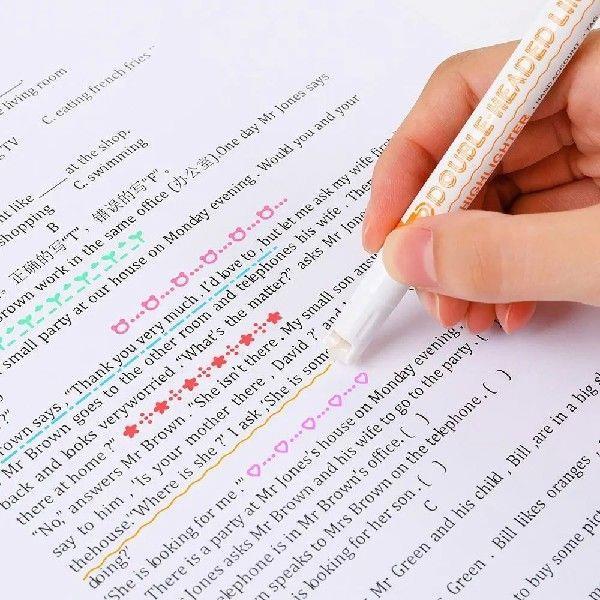 living room
TV C. eating french fries.
like ____ at the shop.
shopping C. swimming
B
正确的写"T"，错误的写"F"。
rown work in the same office (办公室).One day Mr Jones says
small party at our house on Monday evening . Would you and your
?"
rown says. "Thank you very much. I'd love to, but let me ask my wife firs
Mr Brown goes to the other room and telephones his wife . Ther
back and looks veryworried. "What's the matter?" asks Mr Jon
there at home ?"
"No," answers Mr Brown. "She isn't there. My small son an
say to him , 'Is your mother there , David ?' and
thehouse."Where is she ?' I ask ,'She is som
doing?'
'She is looking for me.'"
There is a party at Mr Jones's house on Monday evening.
Jones asks Mr Brown and his wife to go to the party. ( )
ephone is in Mr Brown's office. ( )
n speaks to Mrs Brown on the telephone. ( )
is looking for her son. ( )
C
Mr Green and his child , Bill ,are in a big sh
s. Green . Bill likes oranges ,
to buy some pict
DOUBLE HEADED LIN
HIGHLIGHTER